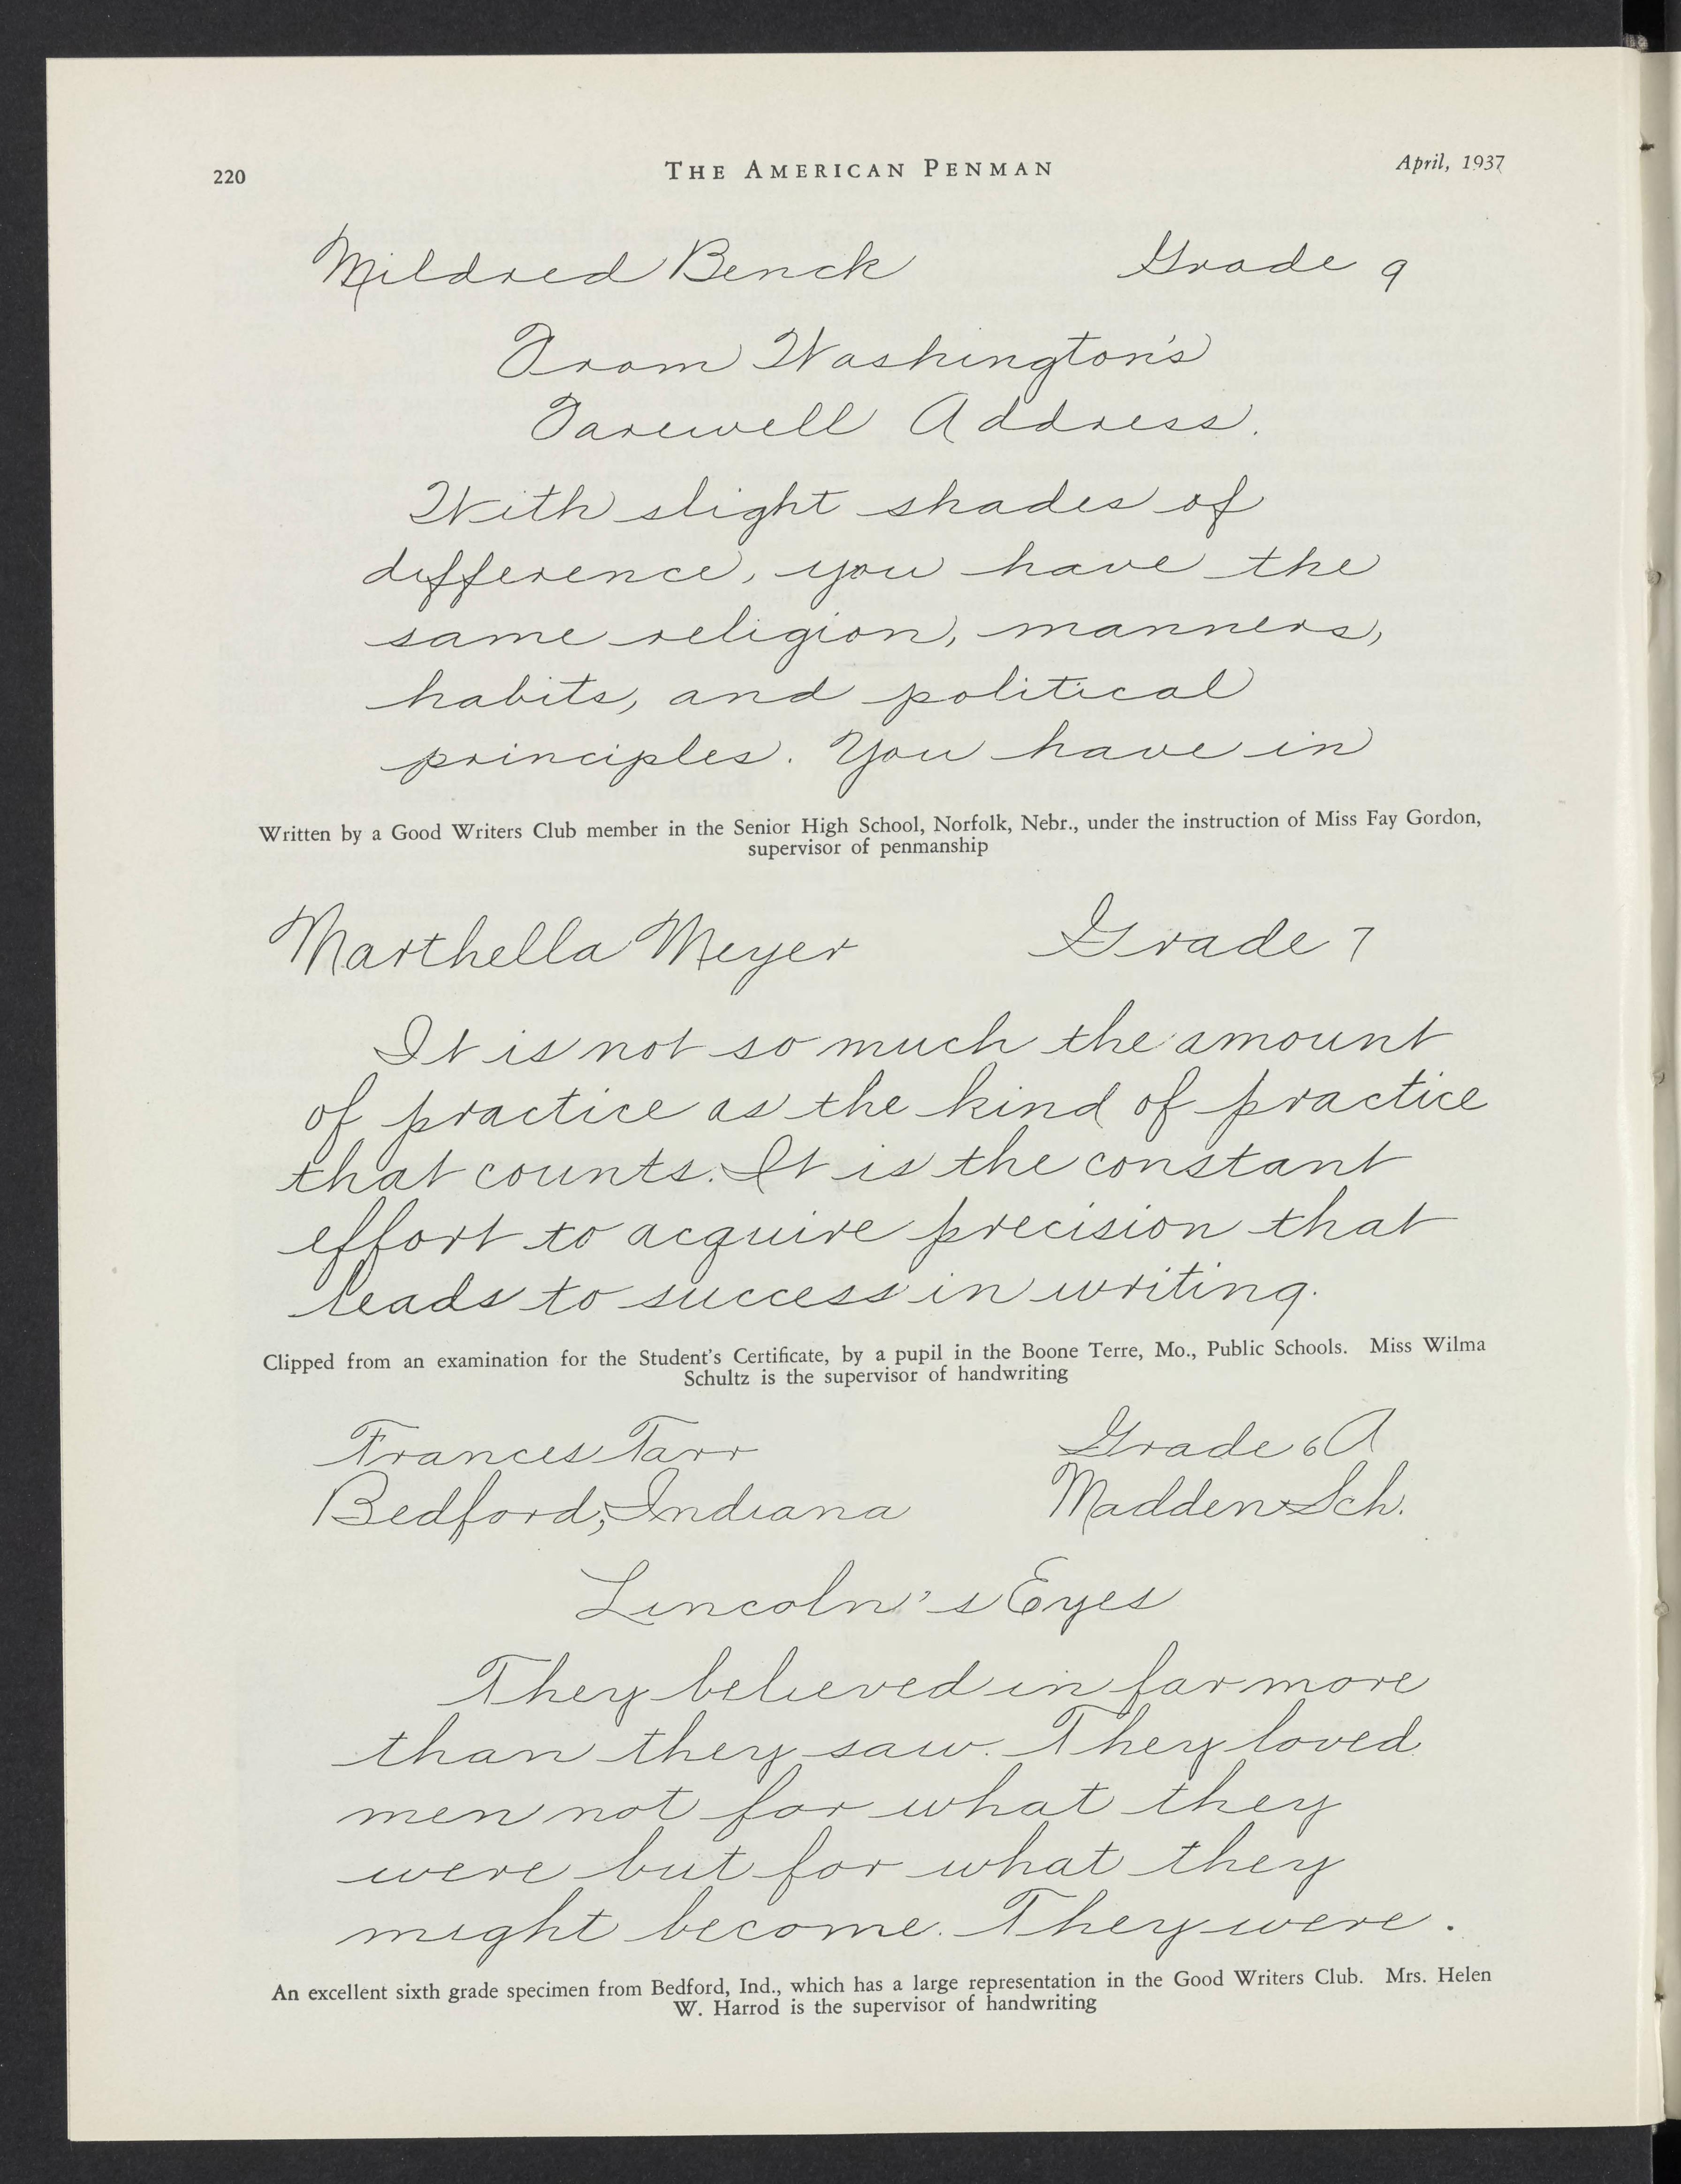 220
THE AMERICAN PENMAN
April, 1937
Mildred Benck Grade 9
From Washington's
Farewell Address.
With slight shades of
difference, you have the
same religion, manners,
habits, and political
principles. You have in
Written by a Good Writers Club member in the Senior High School, Norfolk, Nebr., under the instruction of Miss Fay Gordon,
supervisor of penmanship
Marthella Meyer Grade 7
It is not so much the amount
of practice as the kind of practice
that counts. It is the constant
effort to acquire precision that
leads to success in writing.
Clipped from an examination for the Student's Certificate, by a pupil in the Boone Terre, Mo., Public Schools. Miss Wilma
Schultz is the supervisor of handwriting
Frances Tarr Grade 6A
Bedford, Indiana Madden Sch.
Lincoln's Eyes
They believed in far more
than they saw. They loved
men not for what they
were but for what they
might become. They were.
An excellent sixth grade specimen from Bedford, Ind., which has a large representation in the Good Writers Club. Mrs. Helen
W. Harrod is the supervisor of handwriting